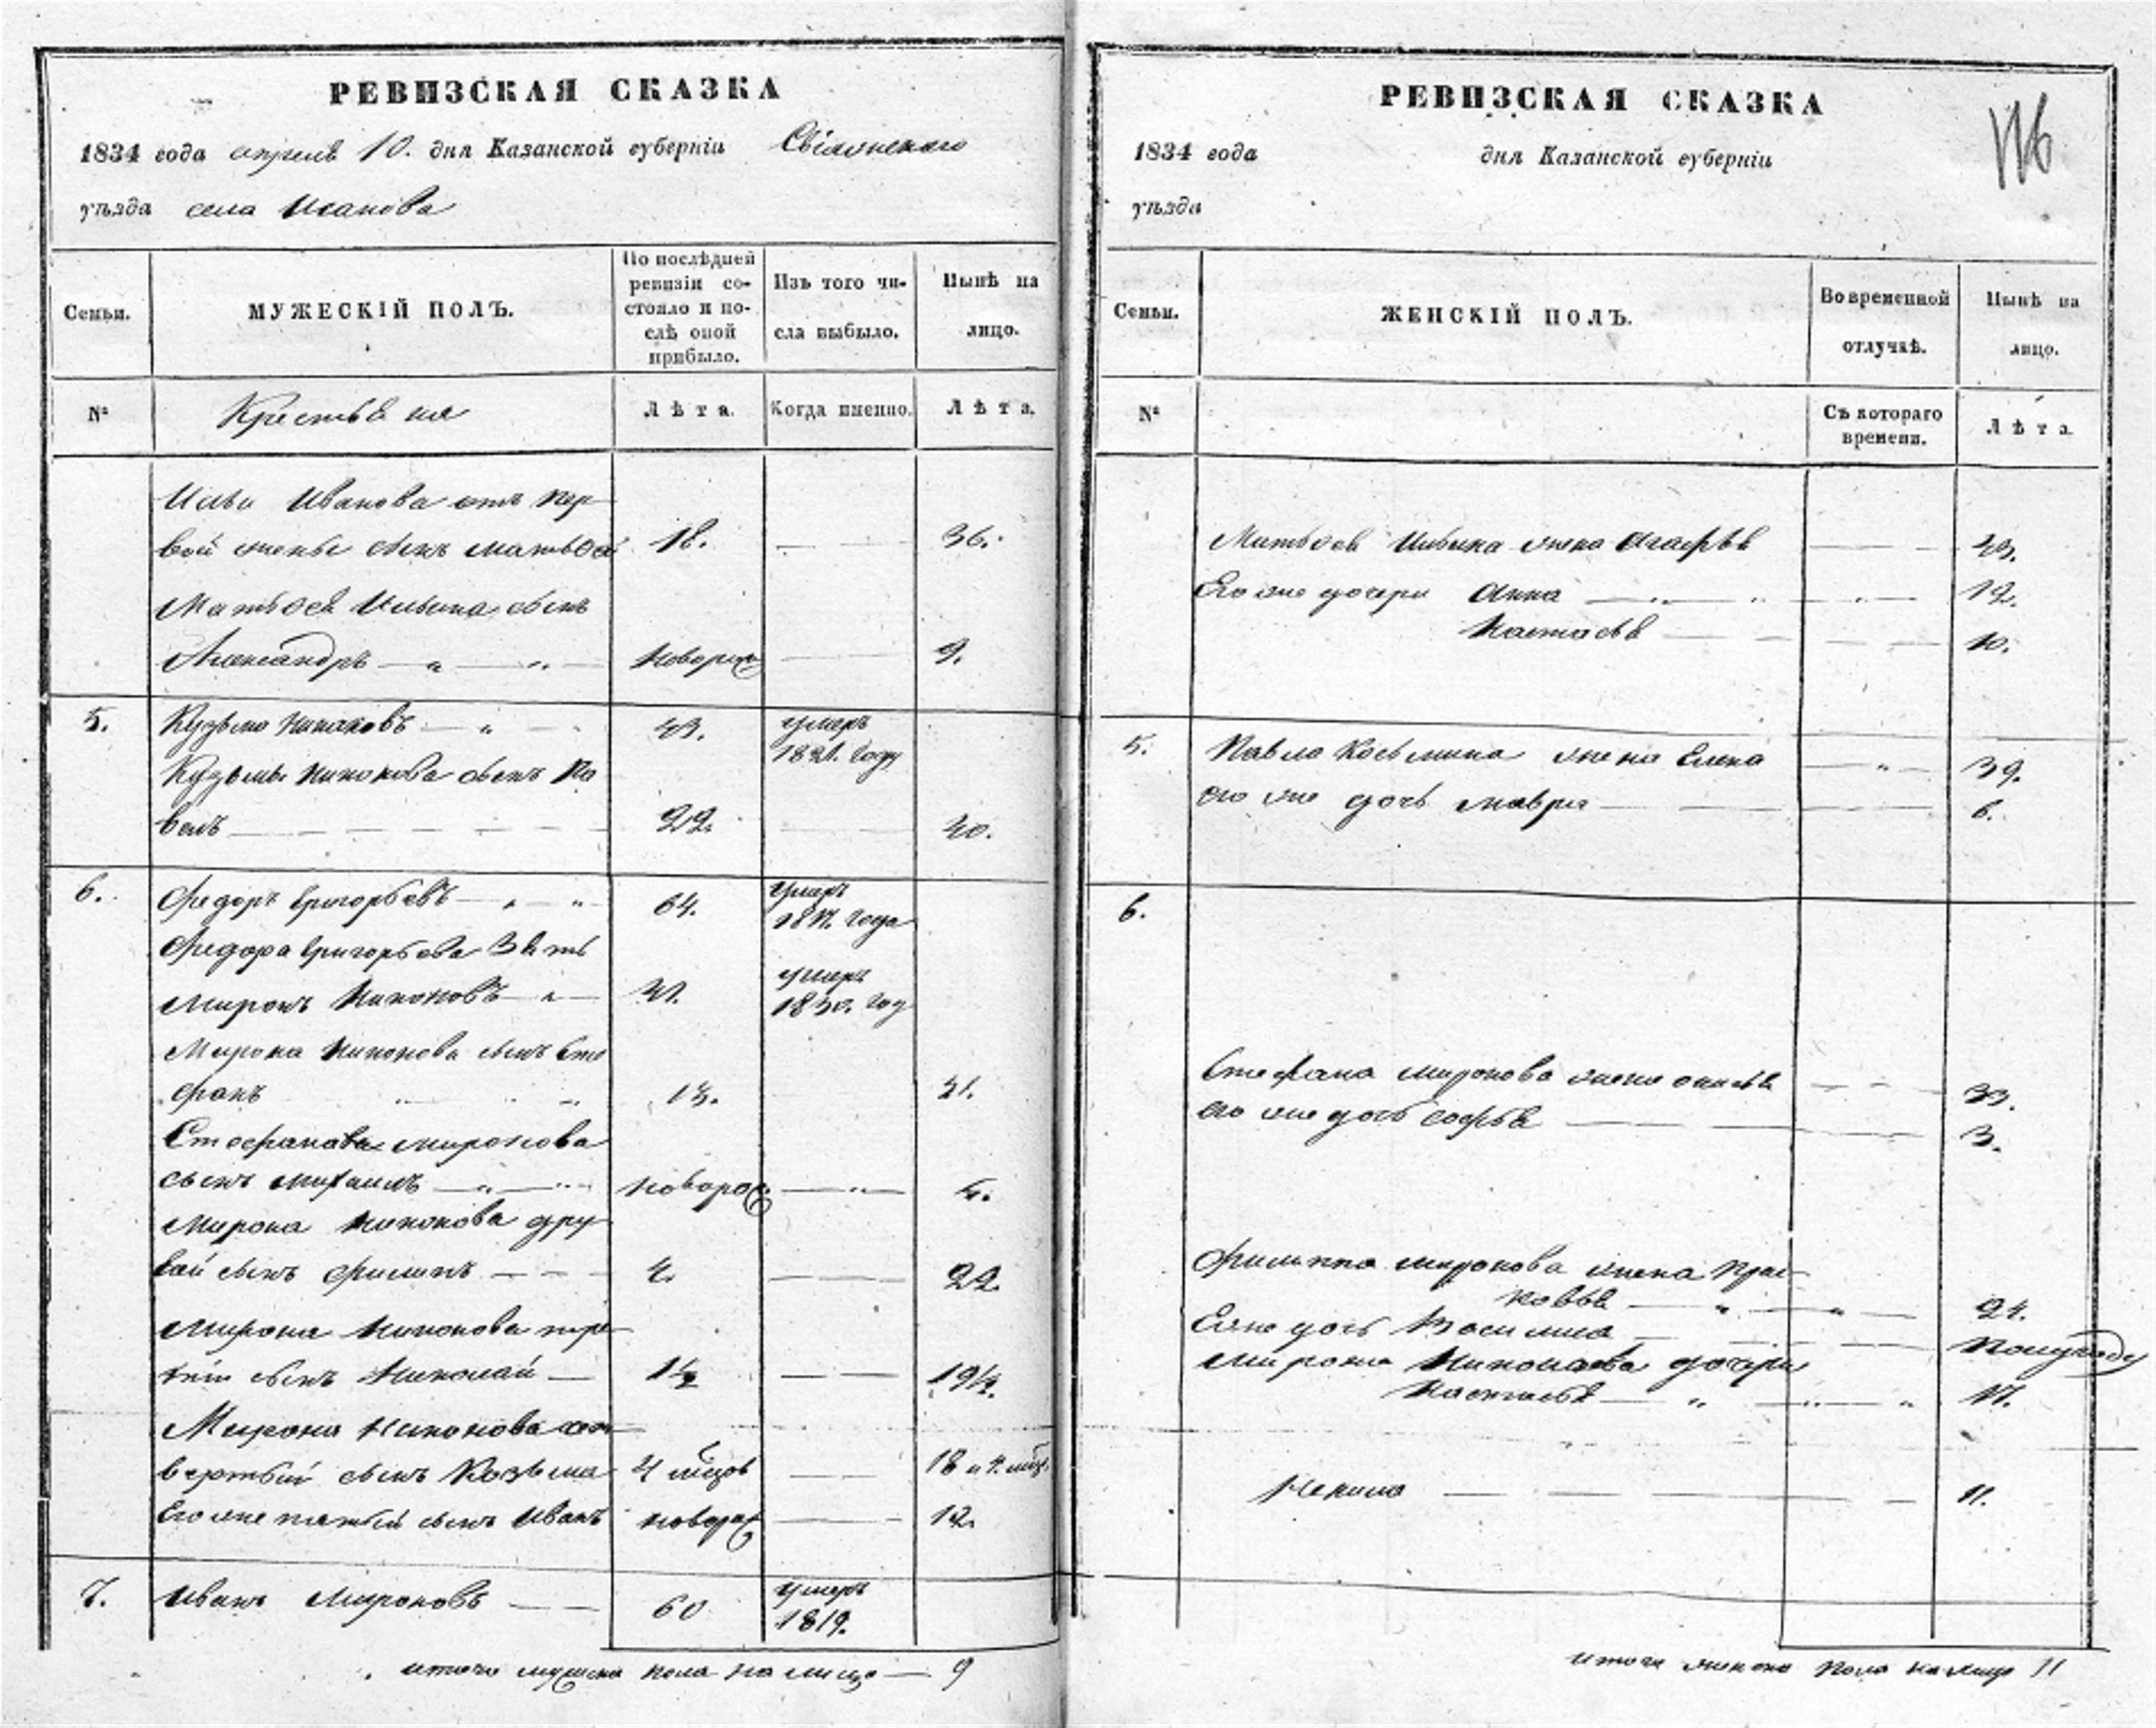 РЕВИЗСКАЯ СКАЗКА
1834 года апреля 10. дня Казанской губерніи
уѣзда села Исакова
Семьи.
МУЖЕСКІЙ ПОЛЪ.
По послѣдней ревизіи состояло и послѣ оной прибыло.
Изъ того числа выбыло.
Нынѣ на лицо.
№
Крестьяня
Лѣта.
Когда именно.
Лѣта.
Ильи Иванова отъ пер-
вой жены сынъ Матвей 18. 36.
Матвея Ильина сынъ
Александръ новорож 9.
5. Кузьма 43. умеръ
1821. году
Кузьмы сынъ Па
велъ 22. 40.
6. Федоръ Григорьевъ 64. умеръ
года
Федора Григорьева зять
Миронъ Никоновъ умеръ
1830. год
Мирона Никонова сынъ Сте
фанъ 13. 31.
Стефанава Миронова
сынъ Михаилъ новорож
Мирона Никонова дру
гай сынъ Филипъ 4. 22.
Мирона Никонова тре
тій сынъ Николай 1½ 19½.
Мирона Никонова чет
вертый сынъ Козьма 4 мѣсцов 18 и 4. мѣс.
Его же пятый сынъ Иванъ новорож 12.
7. Иванъ Мироновъ 60 умеръ
1819.
итого мужска пола на лицо 9
РЕВИЗСКАЯ СКАЗКА
1834 года дня Казанской губерніи
уѣзда
Семьи.
ЖЕНСКІЙ ПОЛЪ.
Во временной отлучкѣ.
Нынѣ на лицо.
№
Съ котораго времени.
Лѣта.
Матвея Ильина жена Агафья 43.
Его же дочери Анна 12.
Настасья 10.
5. Павла Косьмина жена Елена 39.
его же дочь Мавра 6.
6.
Стефана Миронова жена 33.
его же дочь Софья 3.
Филиппа Миронова жена Прас
ковья 24.
Ево же дочь Василиса полугоду
Мирона дочери
Настасья
11.
итого женска пола на лицо 11